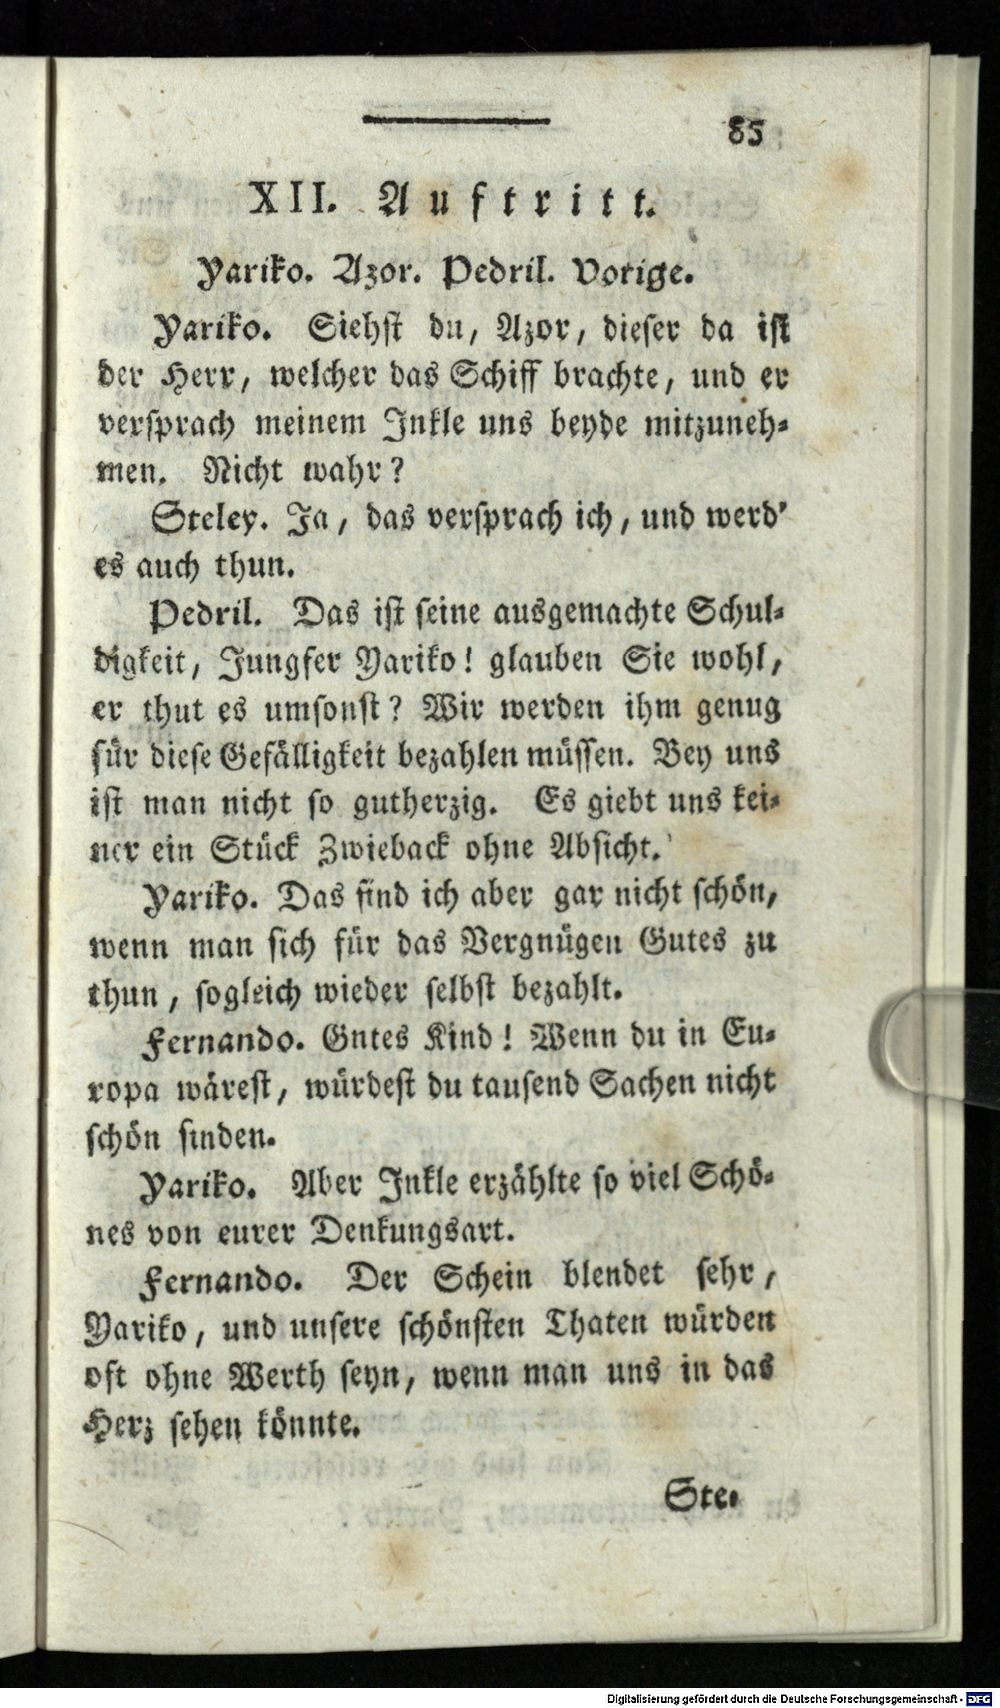 85
XII. Auftritt.
Yariko. Azor. Pedril. Vorige.
Yariko. Siehst du, Azor, dieser da ist
der Herr, welcher das Schiff brachte, und er
versprach meinem Inkle uns beyde mitzuneh-
men. Nicht wahr?
Steley. Ja, das versprach ich, und werd'
es auch thun.
Pedril. Das ist seine ausgemachte Schul-
digkeit, Jungfer Yariko! glauben Sie wohl,
er thut es umsonst? Wir werden ihm genug
für diese Gefälligkeit bezahlen müssen. Bey uns
ist man nicht so gutherzig. Es giebt uns kei-
ner ein Stück Zwieback ohne Absicht.
Yariko. Das find ich aber gar nicht schön,
wenn man sich für das Vergnügen Gutes zu
thun, sogleich wieder selbst bezahlt.
Fernando. Gutes Kind! Wenn du in Eu-
ropa wärest, würdest du tausend Sachen nicht
schön finden.
Yariko. Aber Inkle erzählte so viel Schö-
nes von eurer Denkungsart.
Fernando. Der Schein blendet sehr,
Yariko, und unsere schönsten Thaten würden
oft ohne Werth seyn, wenn man uns in das
Herz sehen könnte.
Ste-
Digitalisierung gefördert durch die Deutsche Forschungsgemeinschaft - DFG